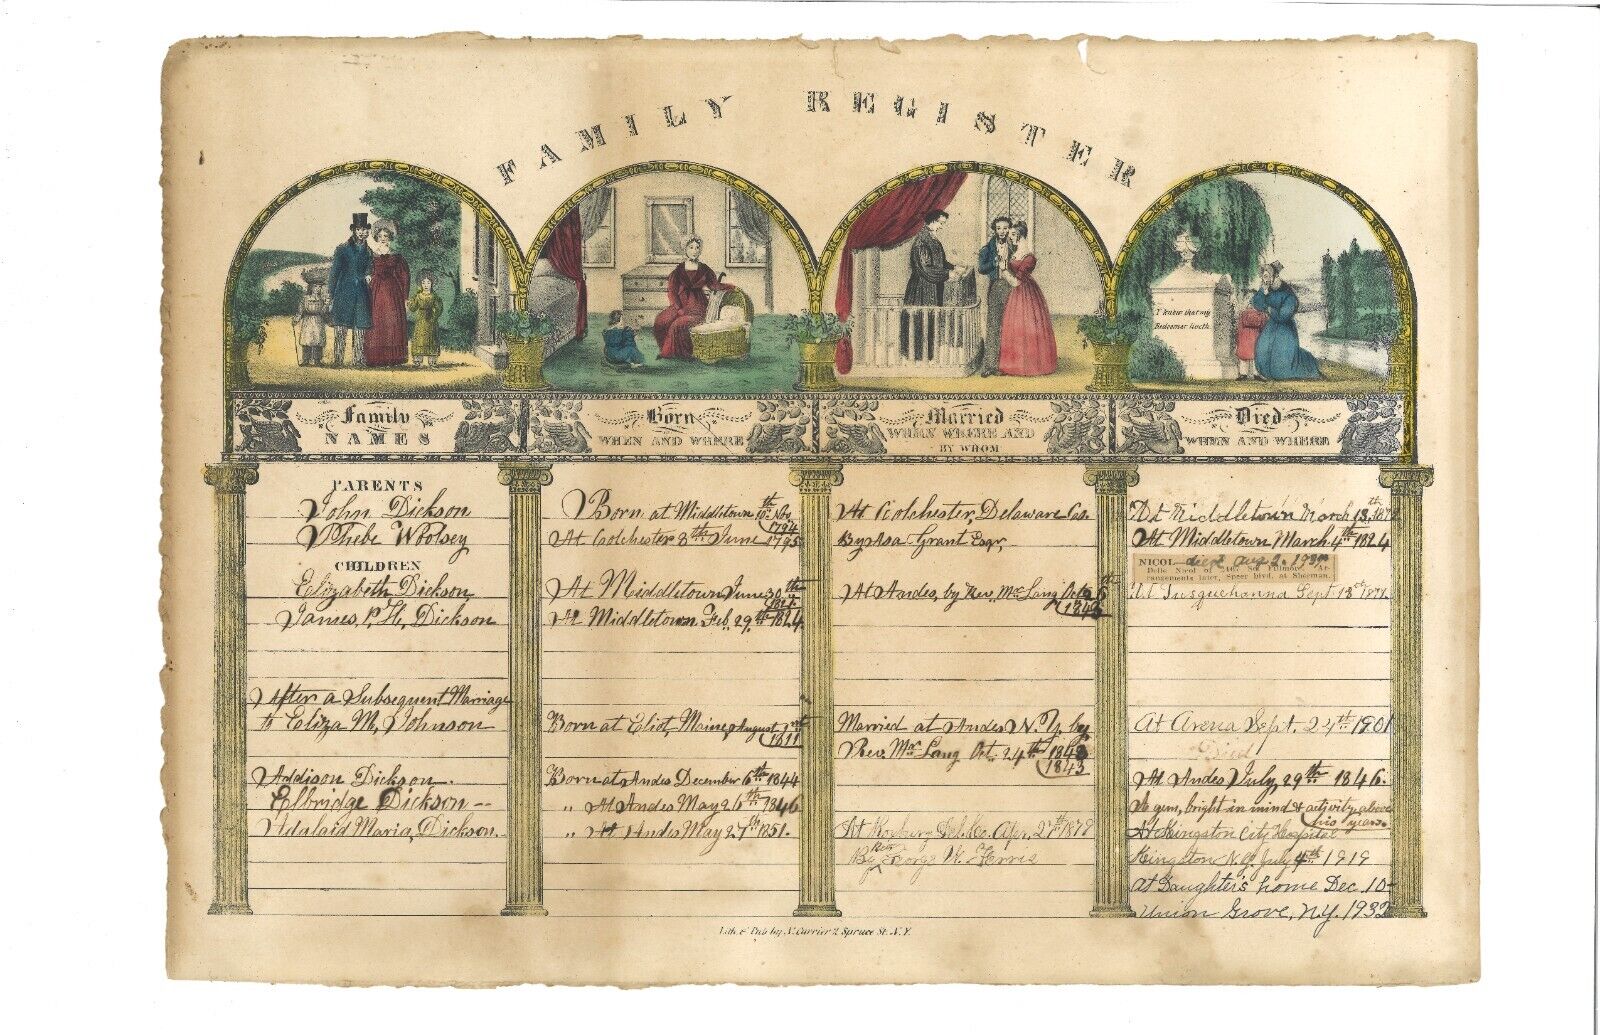 FAMILY REGISTER
I know that my
Redeemer liveth
Family
NAMES
Born
WHEN AND WHERE
Married
WHEN WHERE AND
BY WHOM
Died
WHEN AND WHERE
PARENTS
John Dickson
Phebe Woolsey
CHILDREN
Elizabeth Dickson
James P. H. Dickson
After a Subsequent Marriage
to Eliza M. Johnson
Addison Dickson
Elbridge Dickson --
Adalaid Maria, Dickson.
Born at Middletown Nov.
1794
At Colchester 8th June 1795
At Middletown June 30th
At Middletown Feb. 29th 1824
Born at Eliot, Maine, August 1st
1811
Born at Andes December 6th 1844
" At Andes May 26th 1846
" At Andes May 27th 1851.
At Colchester, Delaware Co.
By Asa Grant Esqr,
At Andes, by Rev. Mr Lang Oct
1843
Married at Andes N.Y. by
Rev. Mr Lang Oct. 24th 1843
1843
At Roxbury Del. Co. Apr. 27th 1878
By Rev George W. Ferris
At Middletown March 13th,
At Middletown March 4th 1824
NICOL—died Aug 2.
Belle Nicol of So. Fillmore. Ar-
rangements later, Speer blvd. at Sherman.
At Susquehanna Sept 18th
At Arena Sept. 24th 1901
Died
At Andes July, 29th 1846.
A gem, bright in mind & activity above
his years.
At Kingston City Hospital
Kingston N.Y. July 4th 1919
At Daughter's home Dec. 10-
Union Grove, N.Y. 1932
Lith. & Pub. by N. Currier 2 Spruce St. N.Y.